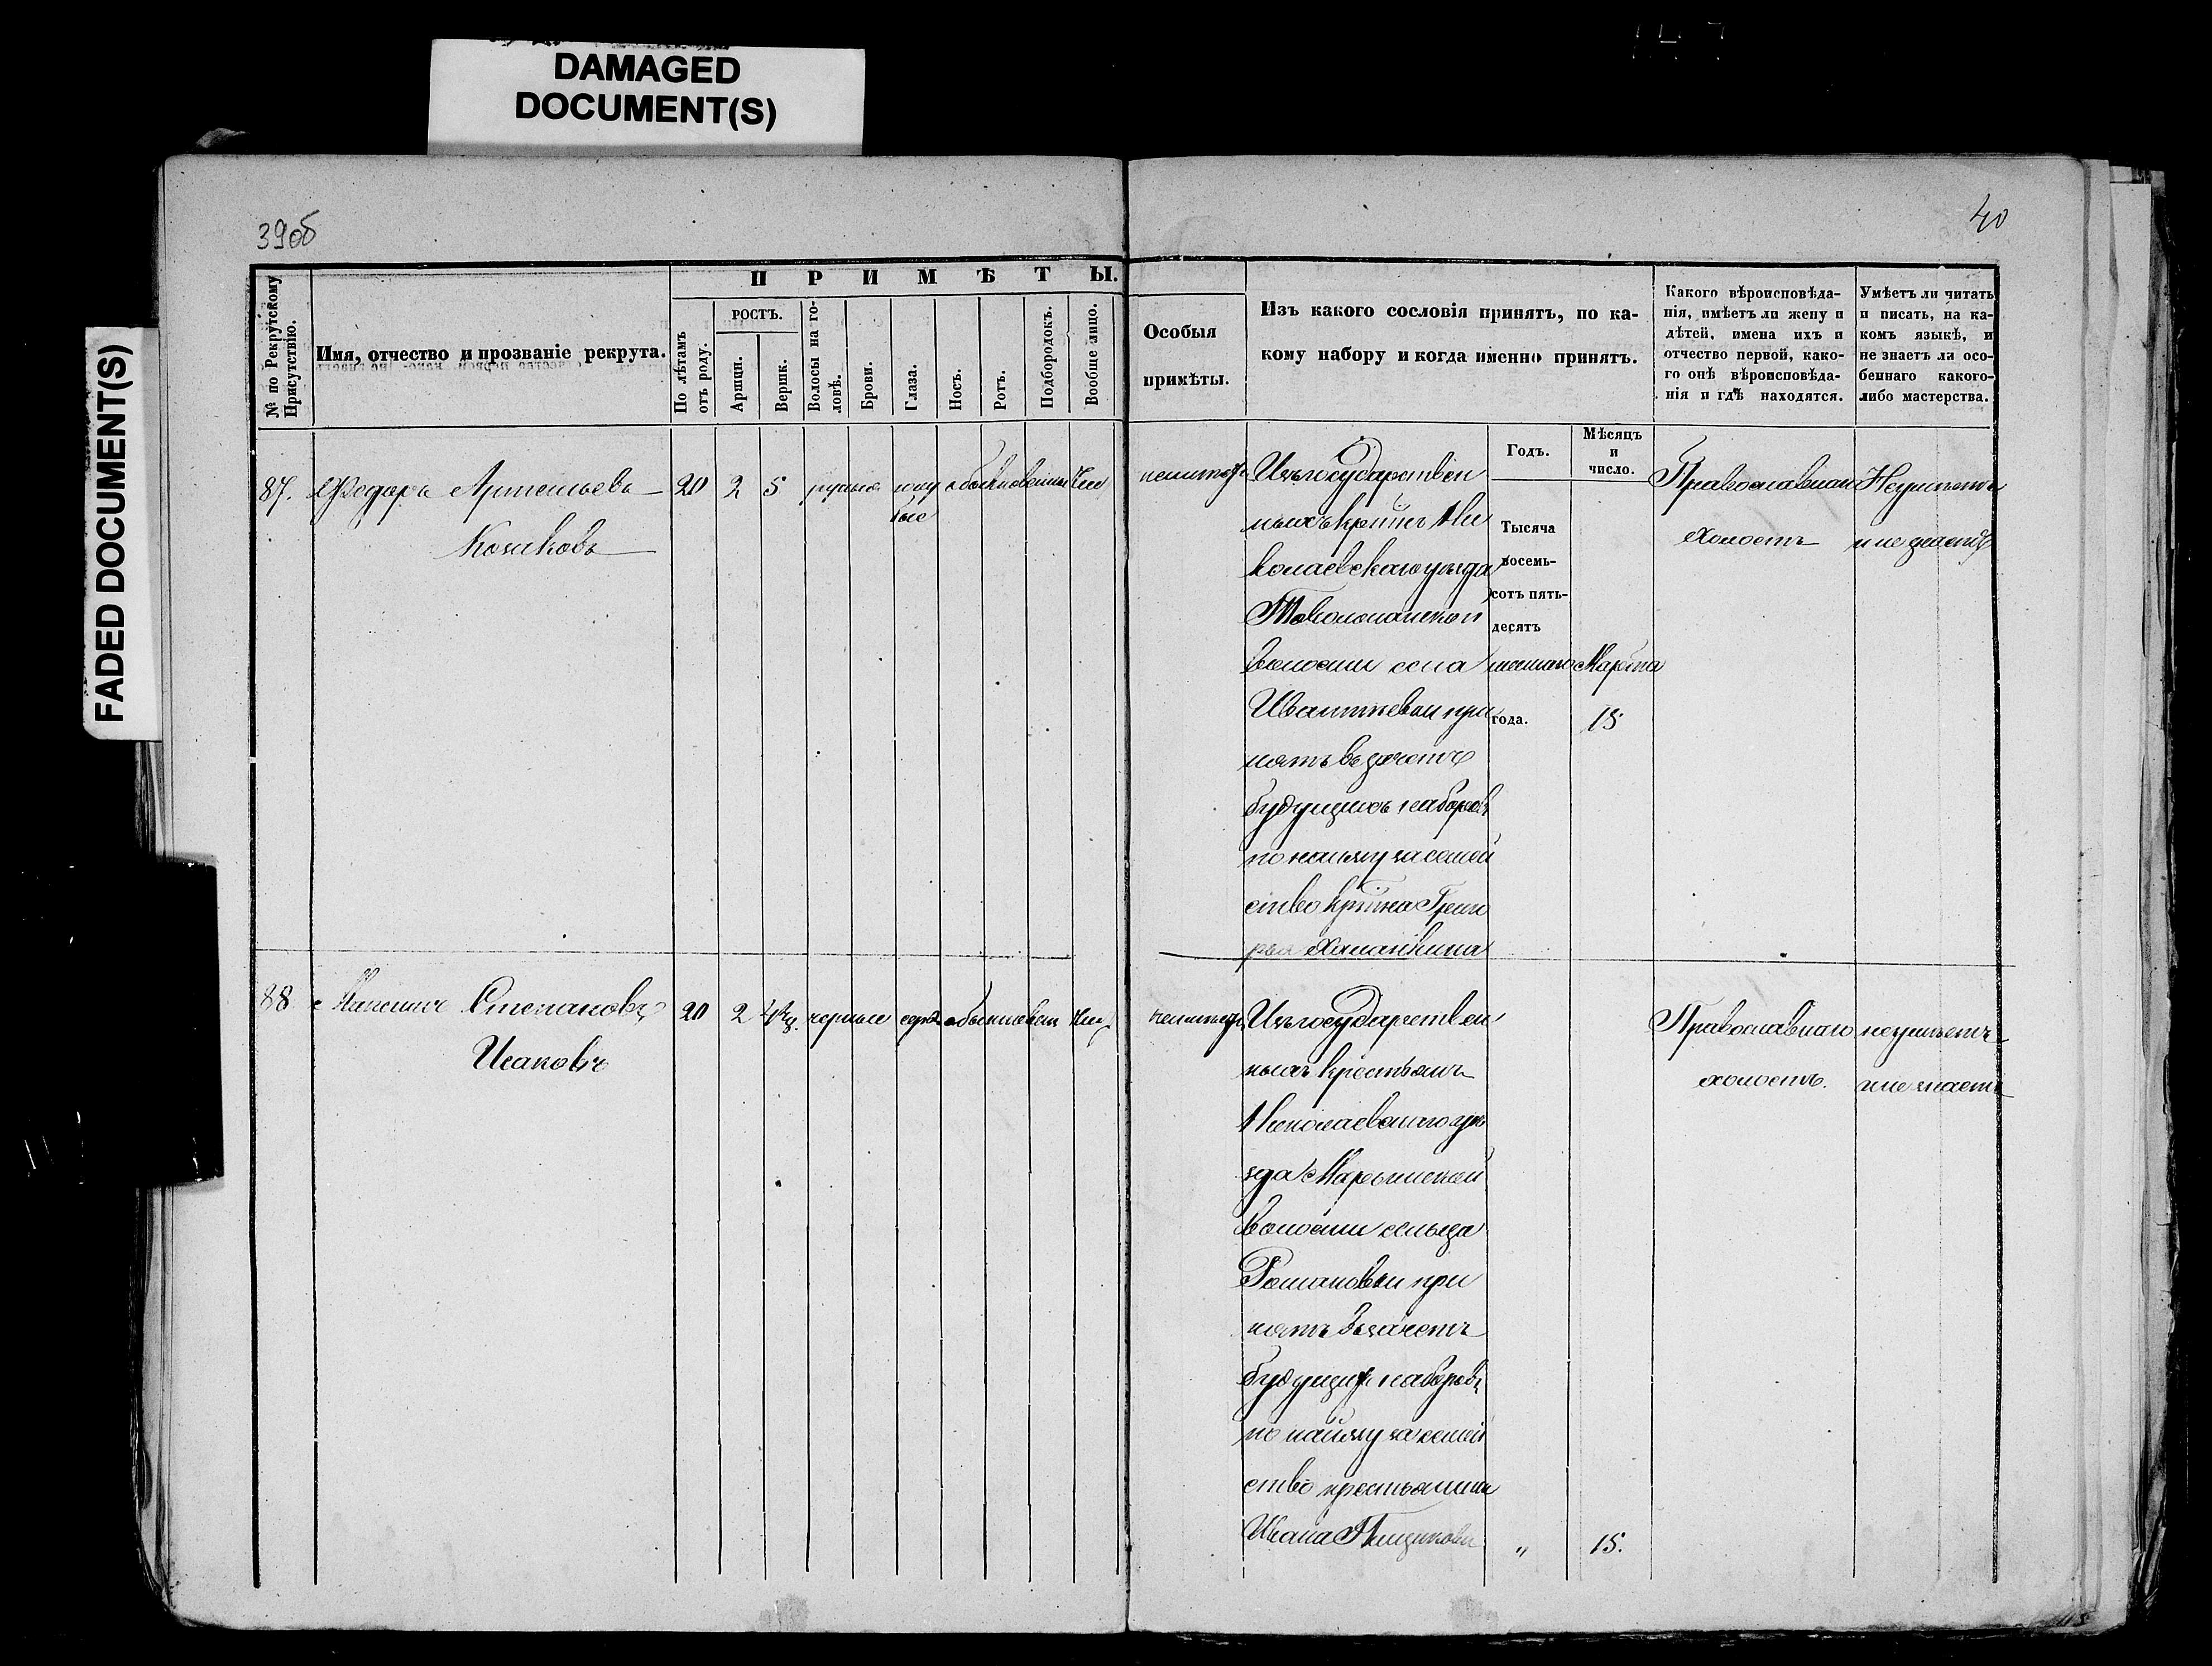 DAMAGED
DOCUMENT(S)
FADED DOCUMENT(S)
39об
40
№ по Рекрутскому
Присутствію.
Имя, отчество и прозваніе рекрута.
ПРИМѢТЫ.
По лѣтамъ
отъ роду.
РОСТЪ.
Аршин.
Вершк.
Волосы на го-
ловѣ.
Брови.
Глаза.
Носъ.
Ротъ.
Подбородокъ.
Вообще лицо.
Особыя
примѣты.
Изъ какого сословія принятъ, по ка-
кому набору и когда именно принятъ.
Какого вѣроисповѣда-
нія, имѣетъ ли жену и
дѣтей, имена ихъ и
отчество первой, како-
го онѣ вѣроисповѣда-
нія и гдѣ находятся.
Умѣетъ ли читать
и писать, на ка-
комъ языкѣ, и
не знаетъ ли осо-
беннаго какого-
либо мастерства.
Годъ.
Мѣсяцъ
и
число.
87.
Федоръ Артемьевъ
Козиковъ
20
2
5
русые
голу
бые
обыкновенные
Чис
неимѣетъ
Изъ государствен
ныхъ крестьнъ Ни
колаевскаго уѣзда
волости села
Ивантѣевки при
нятъ въ зачетъ
будущихъ наборовъ
по найму за семей
ство крстна Григо
рья
Тысяча
восемь-
сотъ пять-
десятъ
года.
Марта
15
Православнаго
холостъ
Неумѣетъ
и не знаетъ
88
Максимъ Степановъ
Исаковъ
20
2
4
черные
сѣрые
обыкновен
Чис
неимѣетъ
Изъ государствен
ныхъ крестьянъ
Николаевскаго уѣ
зда Марьинской
волости сельца
Романовки при
нятъ въ зачетъ
будущихъ наборовъ
по найму за семей
ство крестьянина
Ивана
"
15.
Православнаго
холостъ.
неумѣетъ
и не знаетъ